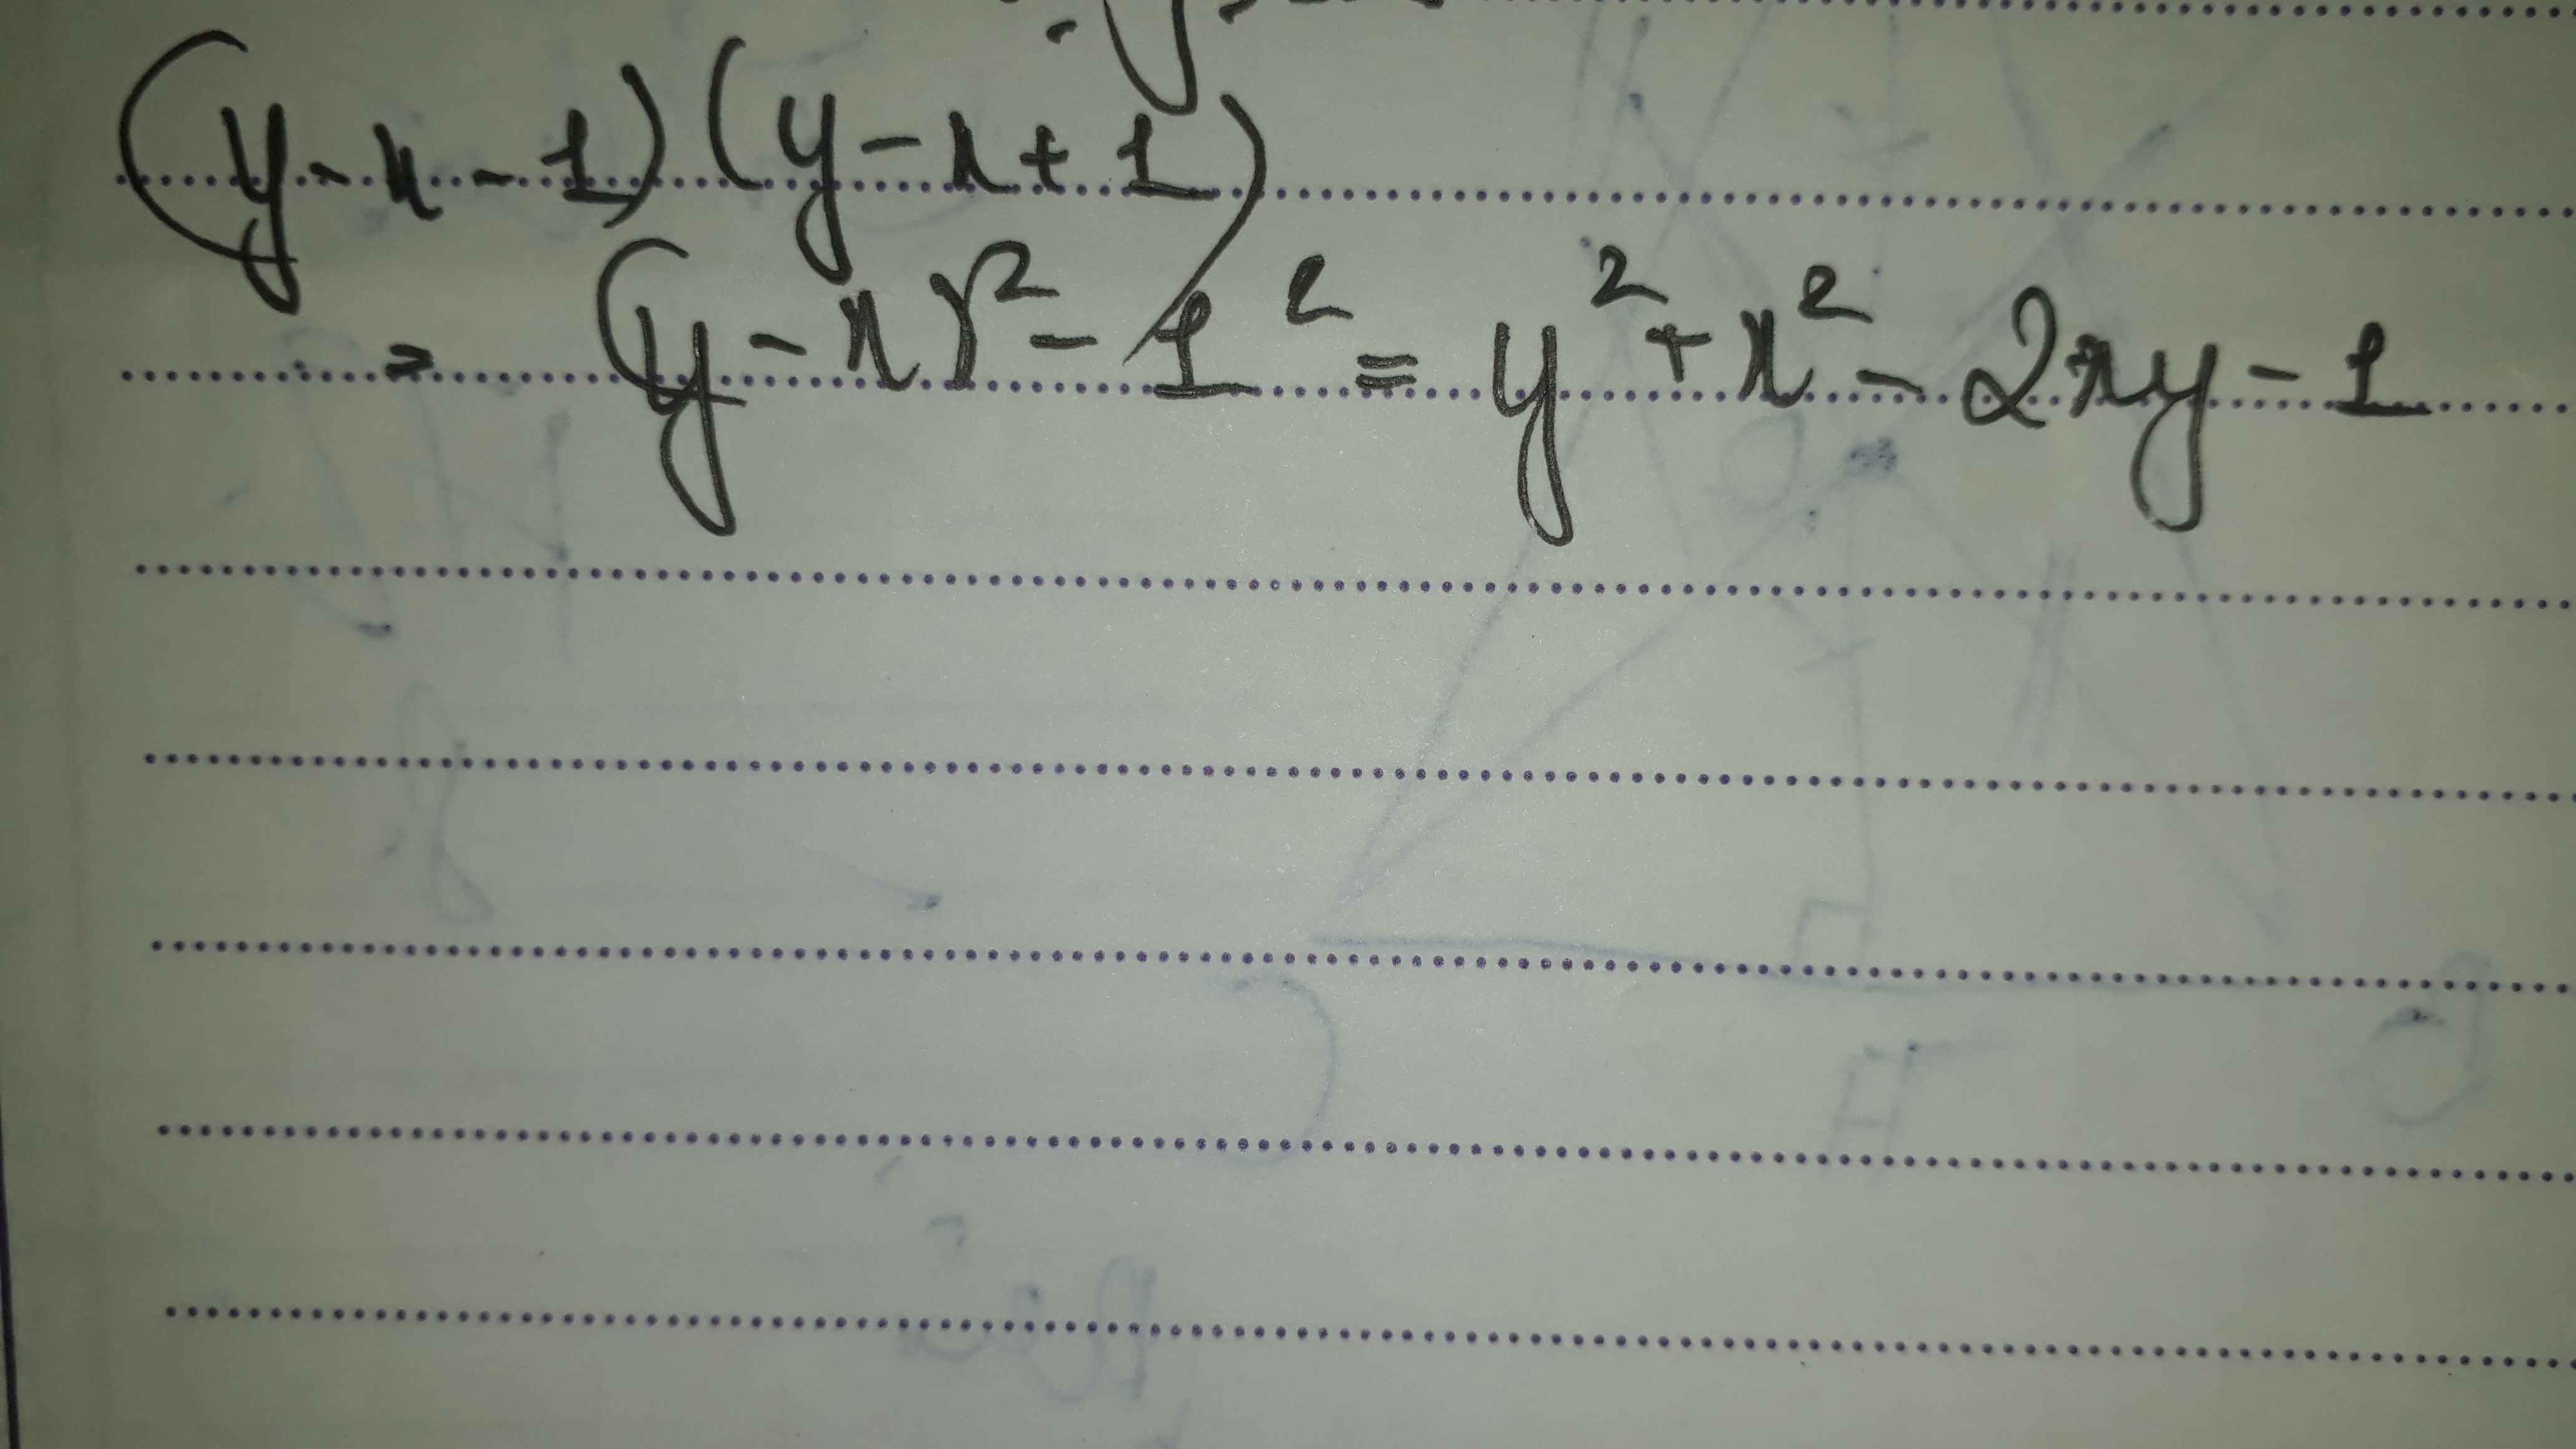 (y - x - 1) (y - x + 1)
= (y - x)² - 1² = y² + x² - 2xy - 1